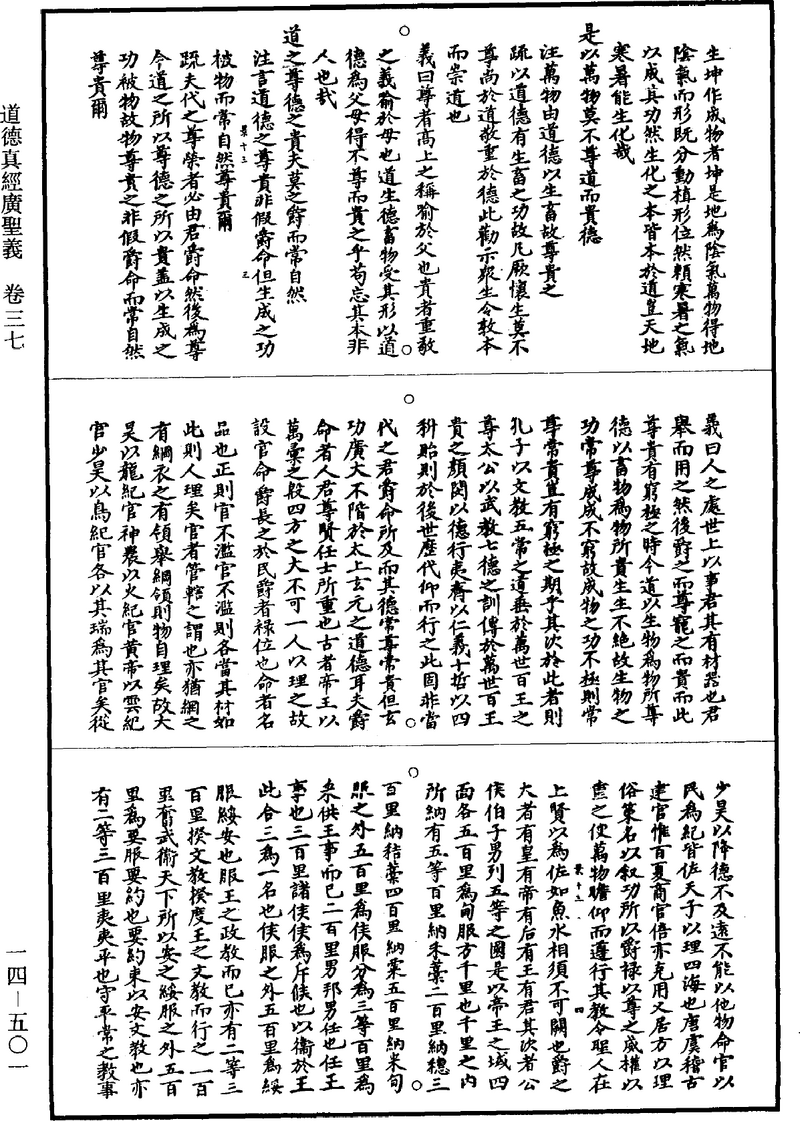 道德真經廣聖義　卷三七
一四—五〇一
生坤作成物者坤是地為陰氣萬物得地
陰氣而形既分動植形位然頼寒暑之氣
以成其功然生化之本皆本於道豈天地
寒暑能生化哉
是以萬物莫不尊道而貴德
注萬物由道德以生畜故尊貴之
疏以道德有生畜之功故凡厥懷生莫不
尊尚於道敬重於德此勸示報生令敎本
而崇道也
義曰尊者高上之稱喻於父也貴者重敬
之義喻於母也道生德畜物受其形以道
德為父母得不尊而貴之乎苟忘其本非
人也哉
道之尊德之貴夫莫之爵而常自然
注言道德之尊貴非假爵命但生成之功
被物而常自然尊貴爾
疏夫代之尊榮者必由君爵命然後為尊
今道之所以尊德之所以貴蓋以生成之
功被物故物尊貴之非假爵命而常自然
尊貴爾
義曰人之處世上以事君其有材器也君
舉而用之然後爵之而尊寵之而貴而此
尊貴有窮極之時今道以生物為物所尊
德以畜物為物所貴生生不絶故生物之
功常尊成成不窮故成物之功不極則常
尊常貴豈有窮極之期乎其次於此者則
孔子以文教五常之道垂於萬世百王之
尊太公以武教七德之訓傳於萬世百王
貴之顏閔以德行夷齊以仁義十哲以四
科貽則於後世歷代仰而行之此固非當
代之君爵命所及而其德常尊常貴但玄
功廣大不階於太上玄元之道德耳夫爵
命者人君尊賢任士所重也古者帝王以
萬彙之殷四方之大不可一人以理之故
設官命爵長之於民爵者祿位也命者名
品也正則官不濫官不濫則各當其材如
此則人理矣官者管轄之謂也亦猶網之
有綱衣之有領舉綱領則物自理矣故大
昊以龍紀官神農以火紀官黃帝以雲紀
官少昊以鳥紀官各以其瑞為其官矣從
少昊以降德不及遠不能以他物命官以
民為紀皆佐天子以理四海也唐虞稽古
建官惟百夏商官倍亦克用乂居方以理
俗策名以叙功所以爵祿以尊之威權以
處之使萬物瞻仰而遵行其教令聖人在
上賢以為佐如魚水相須不可闕也爵之
大者有皇有帝有后有王有君其次者公
侯伯子男列五等之國是以帝王之域四
面各五百里為甸服方千里也千里之内
所納有五等百里納禾藁二百里納穗三
百里納秸藁四百里納粟五百里納米甸
服之外五百里為侯服分為三等百里為
采供王事而已二百里男邦男任也任王
事也三百里諸侯侯為斥候也以衛於王
此合三為一名也侯服之外五百里為綏
服綏安也服王之政教而已亦有二等三
百里揆文敎揆度王之文敎而行之二百
里奮武衛天下所以安之綏服之外五百
里為要服要約也要約束以安文教也亦
有二等三百里夷夷平也守平常之教事